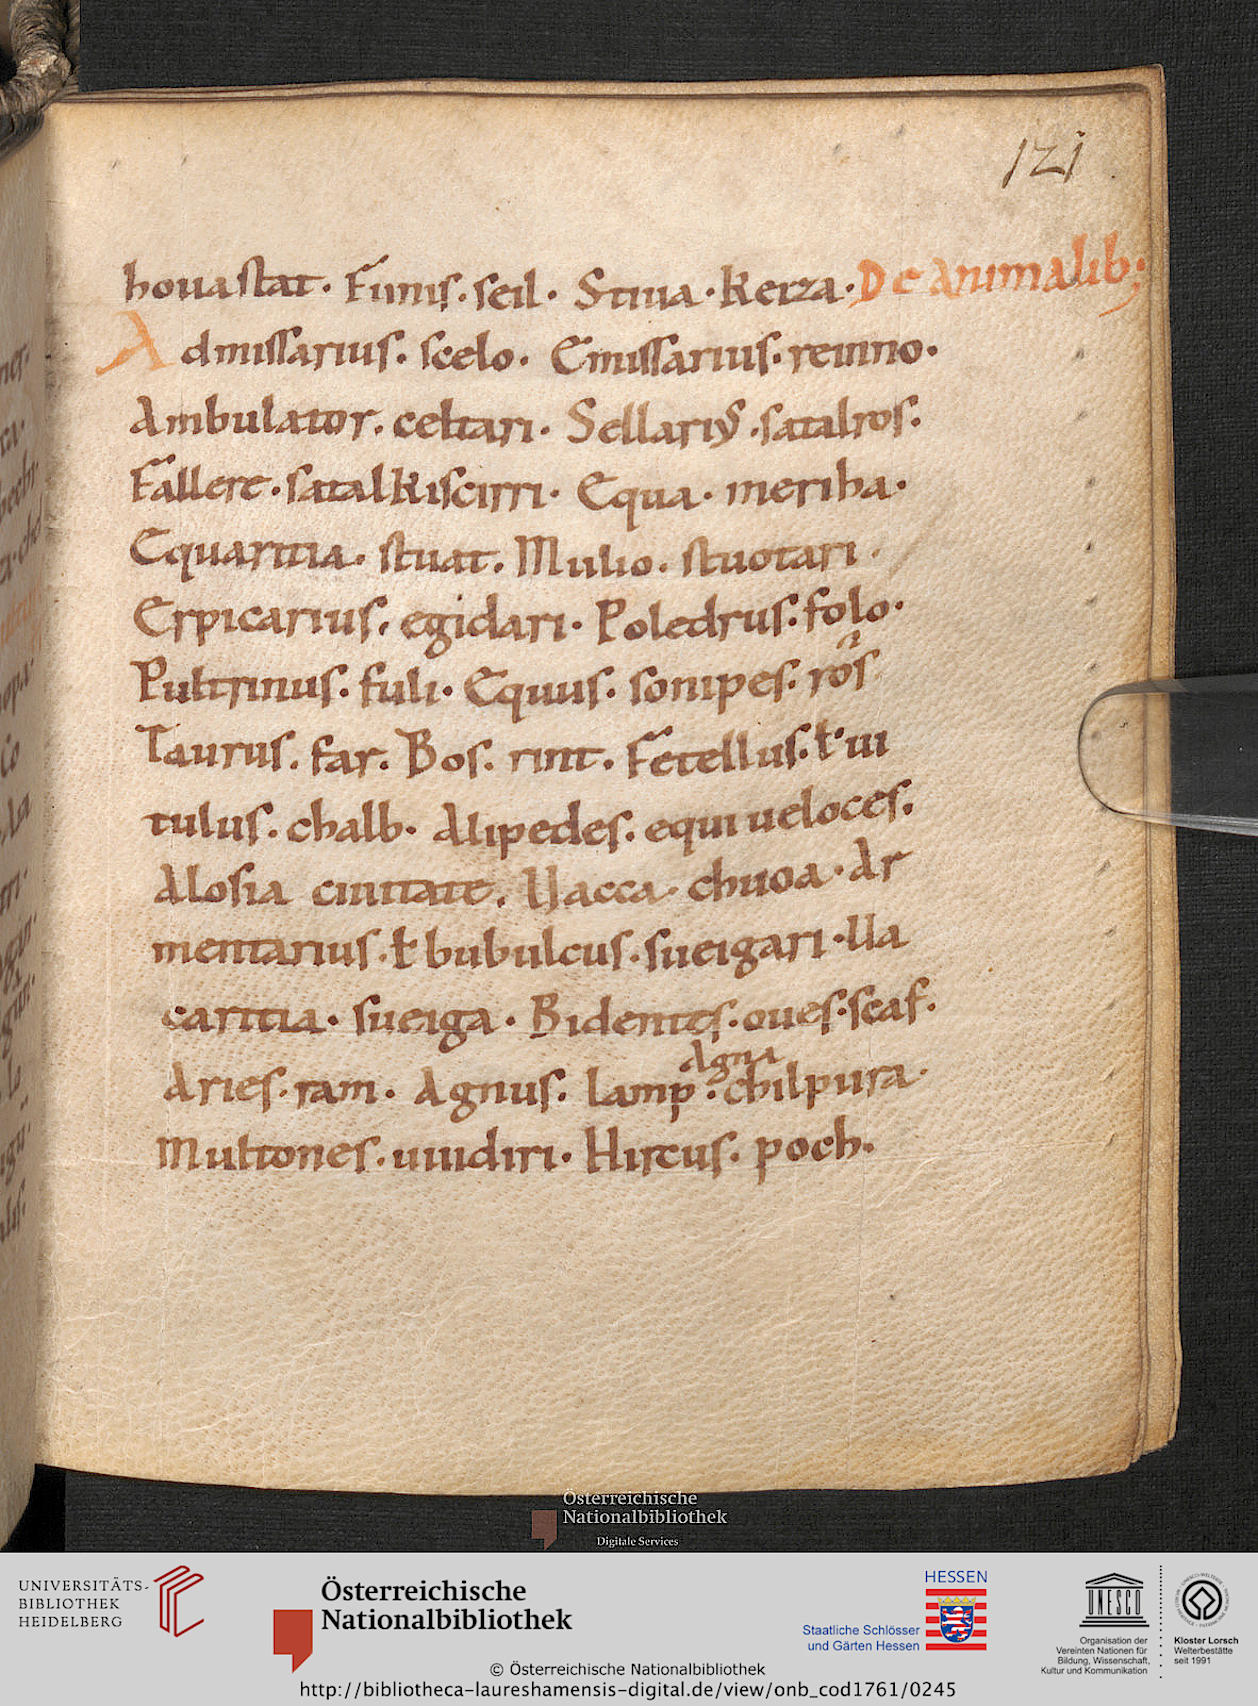 121
houastat. Funis. seil. Stiua. Kerza. De Animalib;
Admissarius. scelo. Emissarius. reinno.
Ambulator. celtari. Sellarius. satalros.
Fallere. satalkiscirri. Equa. meriha.
Equaritia. stuat. Mulio. stuotari.
Erpicarius. egidari. Poledrus. folo.
Pultrinus. fuli. Equus. sonipes. ros
Taurus. far. Bos. rint. Fetellus. ł ui
tulus. chalb. Alipedes. equi ueloces.
Alosia ciuitate. Uacca. chuoa. Ar
mentarius. ł bubulcus. sueigari. Ua
caritia. sueiga. Bidentes. oues. scaf.
Agna
Aries. ram. Agnus. lamp. chilpura.
Multones. uuidiri. Hircus. poch.
Österreichische
Nationalbibliothek
Digitale Services
UNIVERSITÄTS-
BIBLIOTHEK
HEIDELBERG
Österreichische
Nationalbibliothek
HESSEN
Staatliche Schlösser
und Gärten Hessen
UNESCO
Organisation der
Vereinten Nationen für
Bildung, Wissenschaft,
Kultur und Kommunikation
Kloster Lorsch
Welterbestätte
seit 1991
© Österreichische Nationalbibliothek
http://bibliotheca-laureshamensis-digital.de/view/onb_cod1761/0245